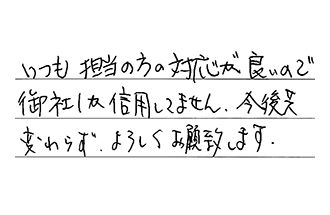 いつも担当の方の対応が良いので
御社しか信用してません。今後共
変わらず、よろしくお願致します。